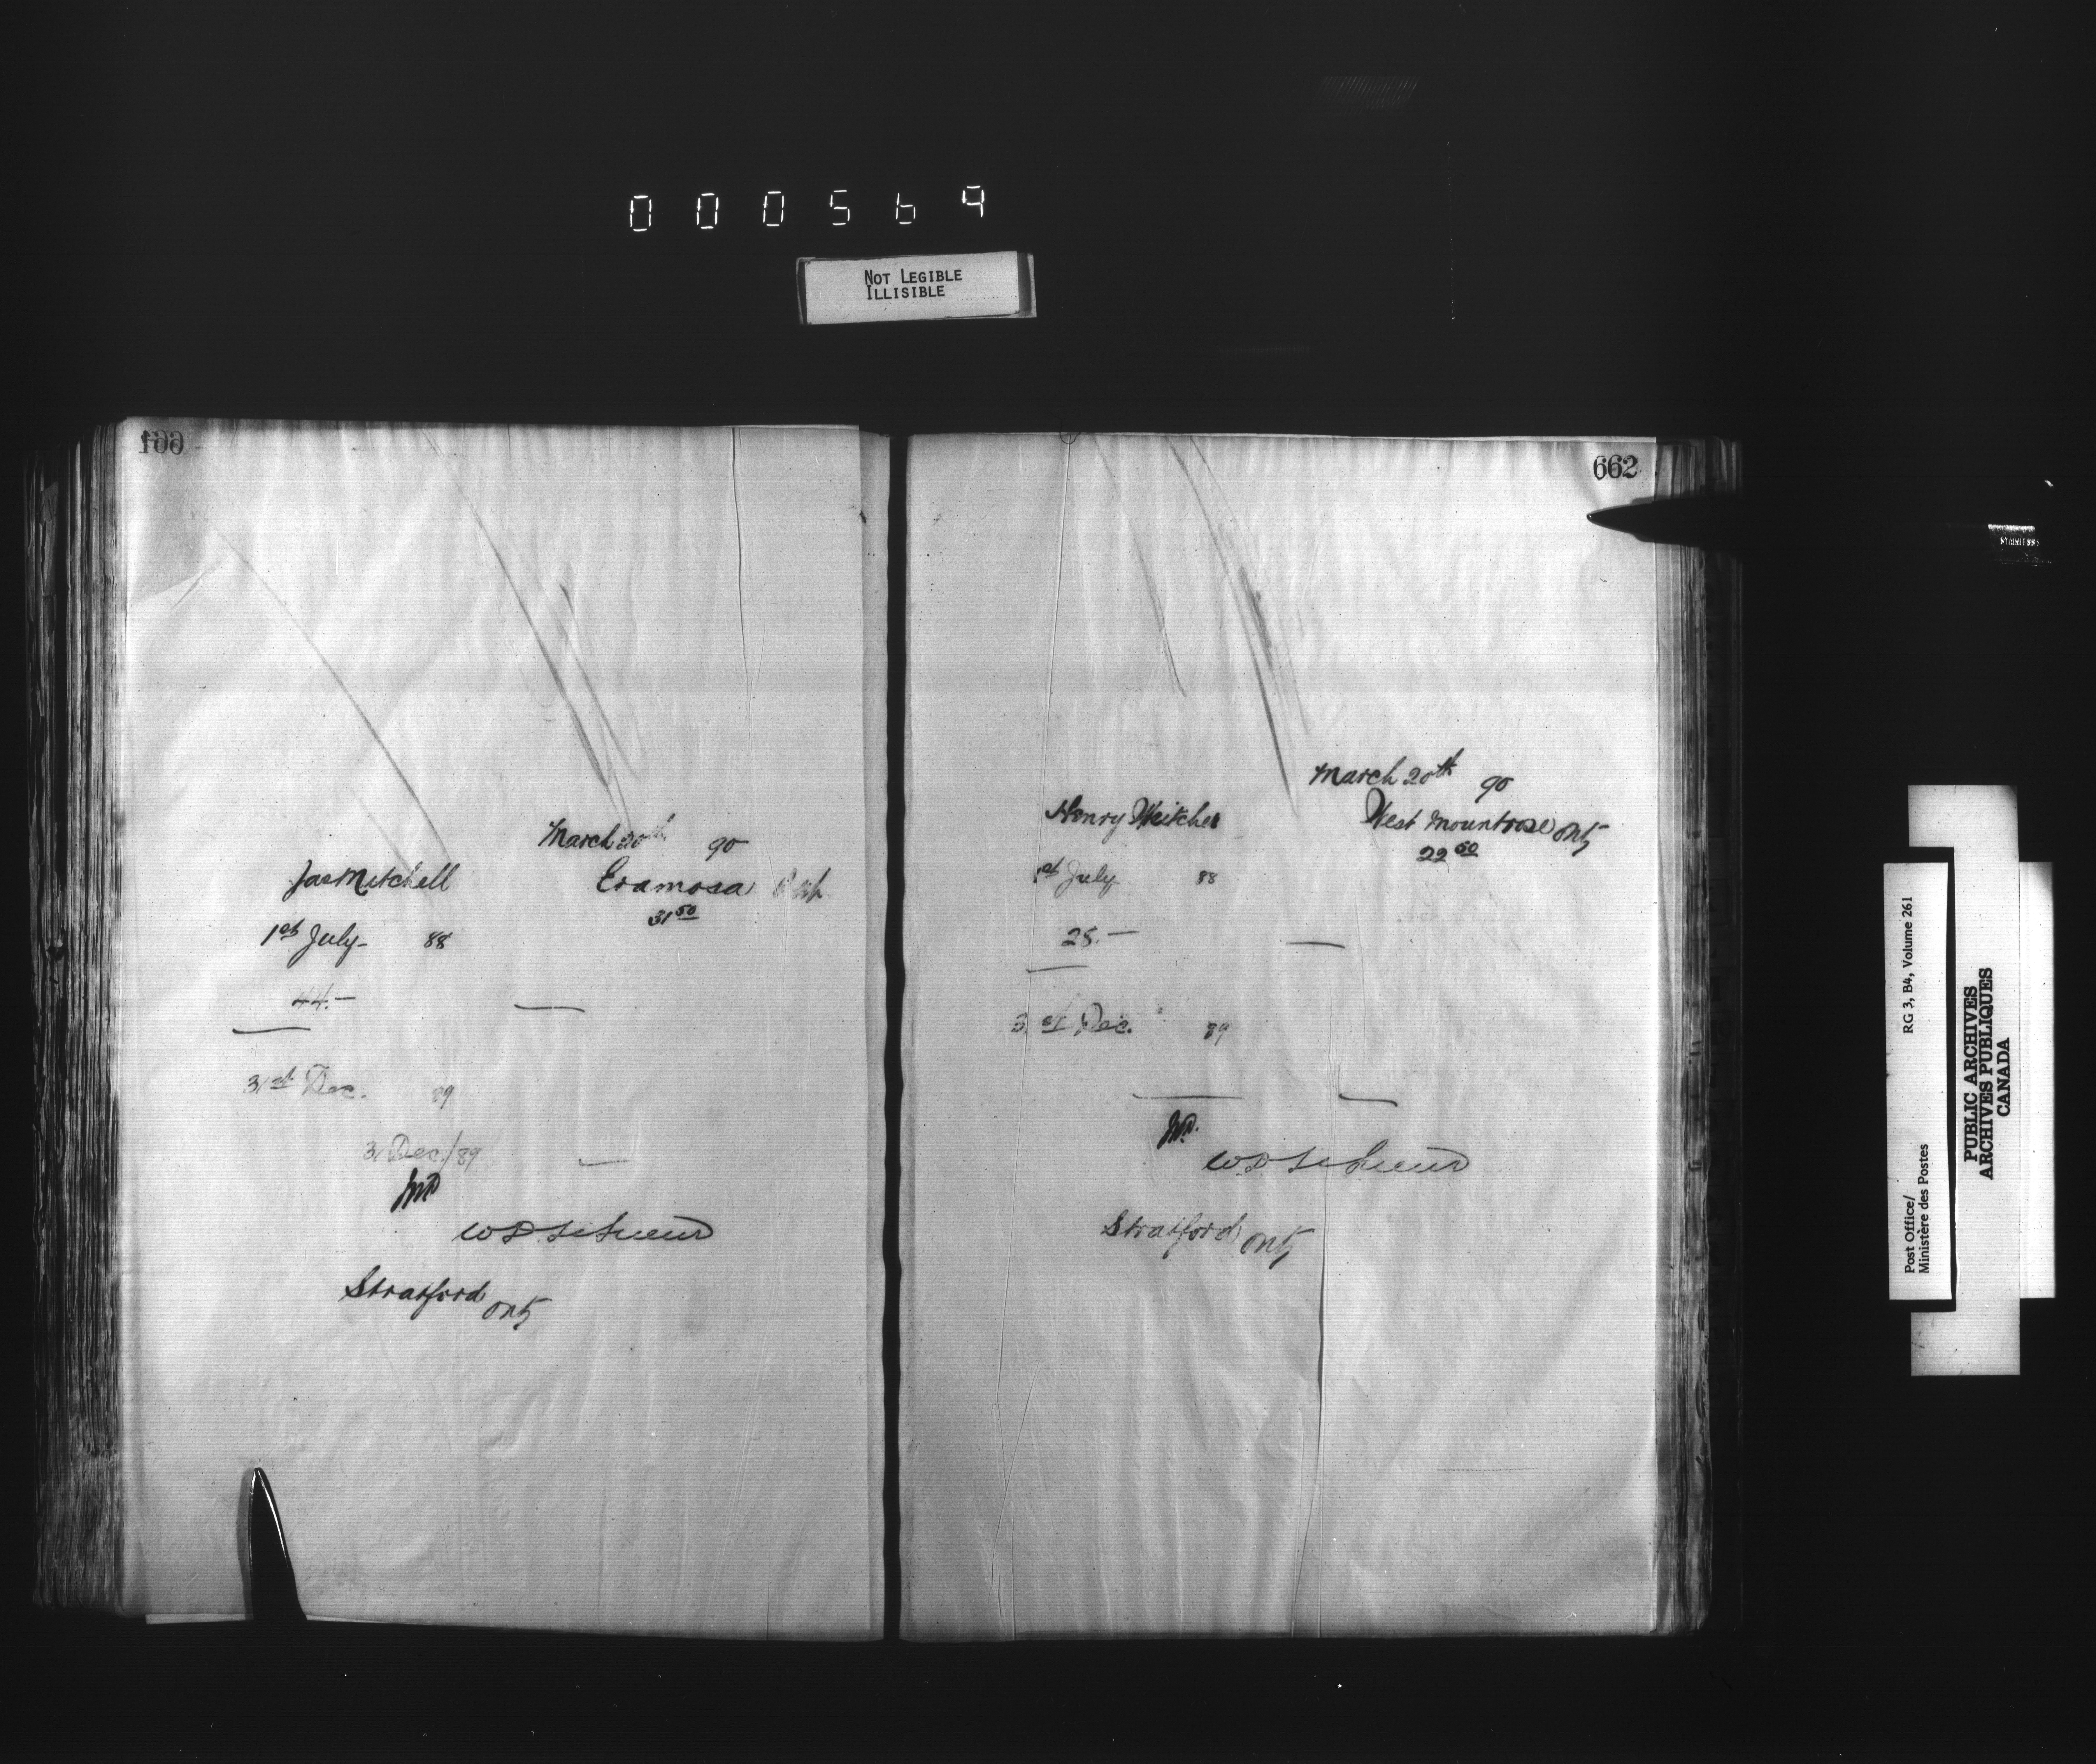 000569
NOT LEGIBLE
ILLISIBLE
March 20th 90
Jas Mitchell Eramosa
31 50
1st July 88
44.—
31st Dec. 89
31 Dec./89
W D LeSueur
Stratford Ont
662
March 20th 90
Henry West Montrose Ont
22 50
1st July 88
28.—
31st Dec. 89
W D LeSueur
Stratford Ont
Post Office/
Ministère des Postes
RG 3, B4, Volume 261
PUBLIC ARCHIVES
ARCHIVES PUBLIQUES
CANADA